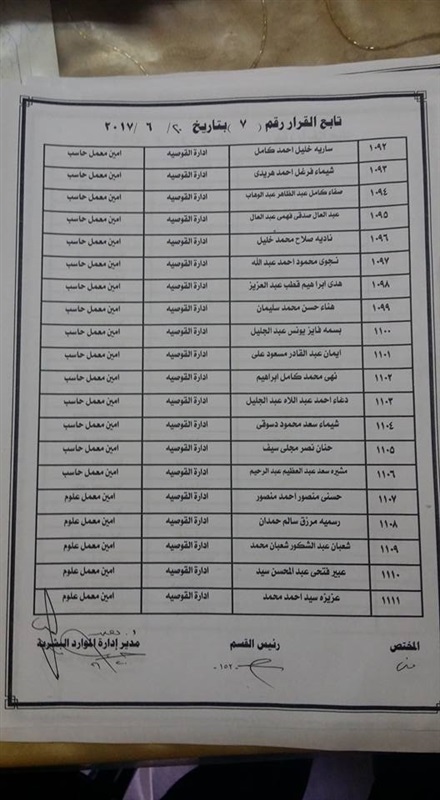 تابع القرار رقم ( ٧ ) بتاريخ ٢٠ / ٦ / ٢٠١٧
١٠٩٢ ساريه خليل احمد كامل ادارة القوصيه امين معمل حاسب
١٠٩٣ شيماء فرغل احمد هريدى ادارة القوصيه امين معمل حاسب
١٠٩٤ صفاء كامل عبد الظاهر عبد الوهاب ادارة القوصيه امين معمل حاسب
١٠٩٥ عبد العال صدقى فهمى عبد العال ادارة القوصيه امين معمل حاسب
١٠٩٦ ناديه صلاح محمد خليل ادارة القوصيه امين معمل حاسب
١٠٩٧ نجوى محمود احمد عبد الله ادارة القوصيه امين معمل حاسب
١٠٩٨ هدى ابراهيم قطب عبد العزيز ادارة القوصيه امين معمل حاسب
١٠٩٩ هناء حسن محمد سليمان ادارة القوصيه امين معمل حاسب
١١٠٠ بسمه فايز يونس عبد الجليل ادارة القوصيه امين معمل حاسب
١١٠١ ايمان عبد القادر مسعود على ادارة القوصيه امين معمل حاسب
١١٠٢ نهى محمد كامل ابراهيم ادارة القوصيه امين معمل حاسب
١١٠٣ دعاء احمد عبد اللاه عبد الجليل ادارة القوصيه امين معمل حاسب
١١٠٤ شيماء سعد محمود دسوقى ادارة القوصيه امين معمل حاسب
١١٠٥ حنان نصر مجلى سيف ادارة القوصيه امين معمل حاسب
١١٠٦ مشيره سعد عبد العظيم عبد الرحيم ادارة القوصيه امين معمل حاسب
١١٠٧ حسنى منصور احمد منصور ادارة القوصيه امين معمل علوم
١١٠٨ رسميه مرزق سالم حمدان ادارة القوصيه امين معمل علوم
١١٠٩ شعبان عبد الشكور شعبان محمد ادارة القوصيه امين معمل علوم
١١١٠ عبير فتحى عبد المحسن سيد ادارة القوصيه امين معمل علوم
١١١١ عزيزه سيد احمد محمد ادارة القوصيه امين معمل علوم
المختص رئيس القسم مدير إدارة الموارد البشرية